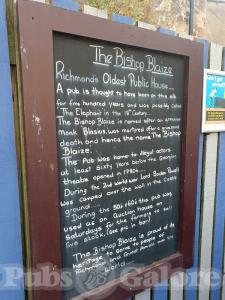 The Bishop Blaize
Richmond's Oldest Public House...
A pub is thought to have been on this site
for five hundred years and was possibly called
'The Elephant' in the 18th Century...
The Bishop Blaize is named after an Armenian
Monk Blasius, was martyred after a gruesome
death and hence the name The Bishop
Blaize...
The Pub was home to illegal actors
at least sixty years before the Georgian
theatre opened in
During the 2nd world war Lord Baden Powell
was camped over the wall in the Castle
ground...
During the 50s & 60s the pub was
used as an Auction house on
Saturdays for the farmers to sell
live stock, (see pic in bar)
The Bishop Blaize is proud of its
heritage to serve to people of
Richmond and
world...
Don't
Pubs Galore